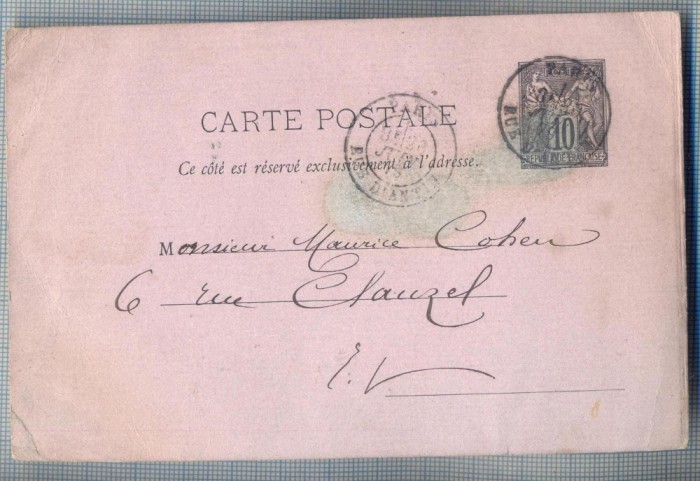 CARTE POSTALE
Ce côté est réservé exclusivement à l'adresse.
PARIS
RUE D'ANTIN
RUE
10
REPUBLIQUE FRANÇAISE
Monsieur Maurice Cohen
6 rue Clauzel
E.V